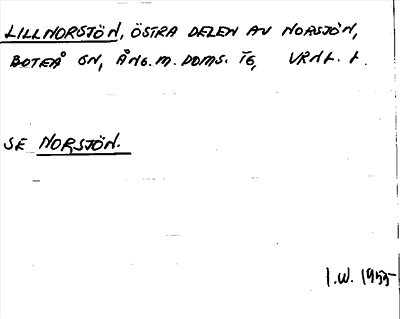 LILLNORSJÖN, ÖSTRA DELEN AV NORSJÖN,
BOTEÅ SN, ÅNG.M.DOMS. TG, VRNL. L.
SE NORSJÖN.
I.W. 1955